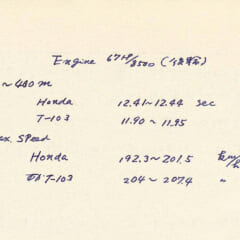 Engine 67HP/8500 (
~ 400m
Honda 12.41~12.44 sec
T-103 11.90~11.95
ax. Speed
Honda 192.3~201.5 km/h
T-103 204~207.4 〃